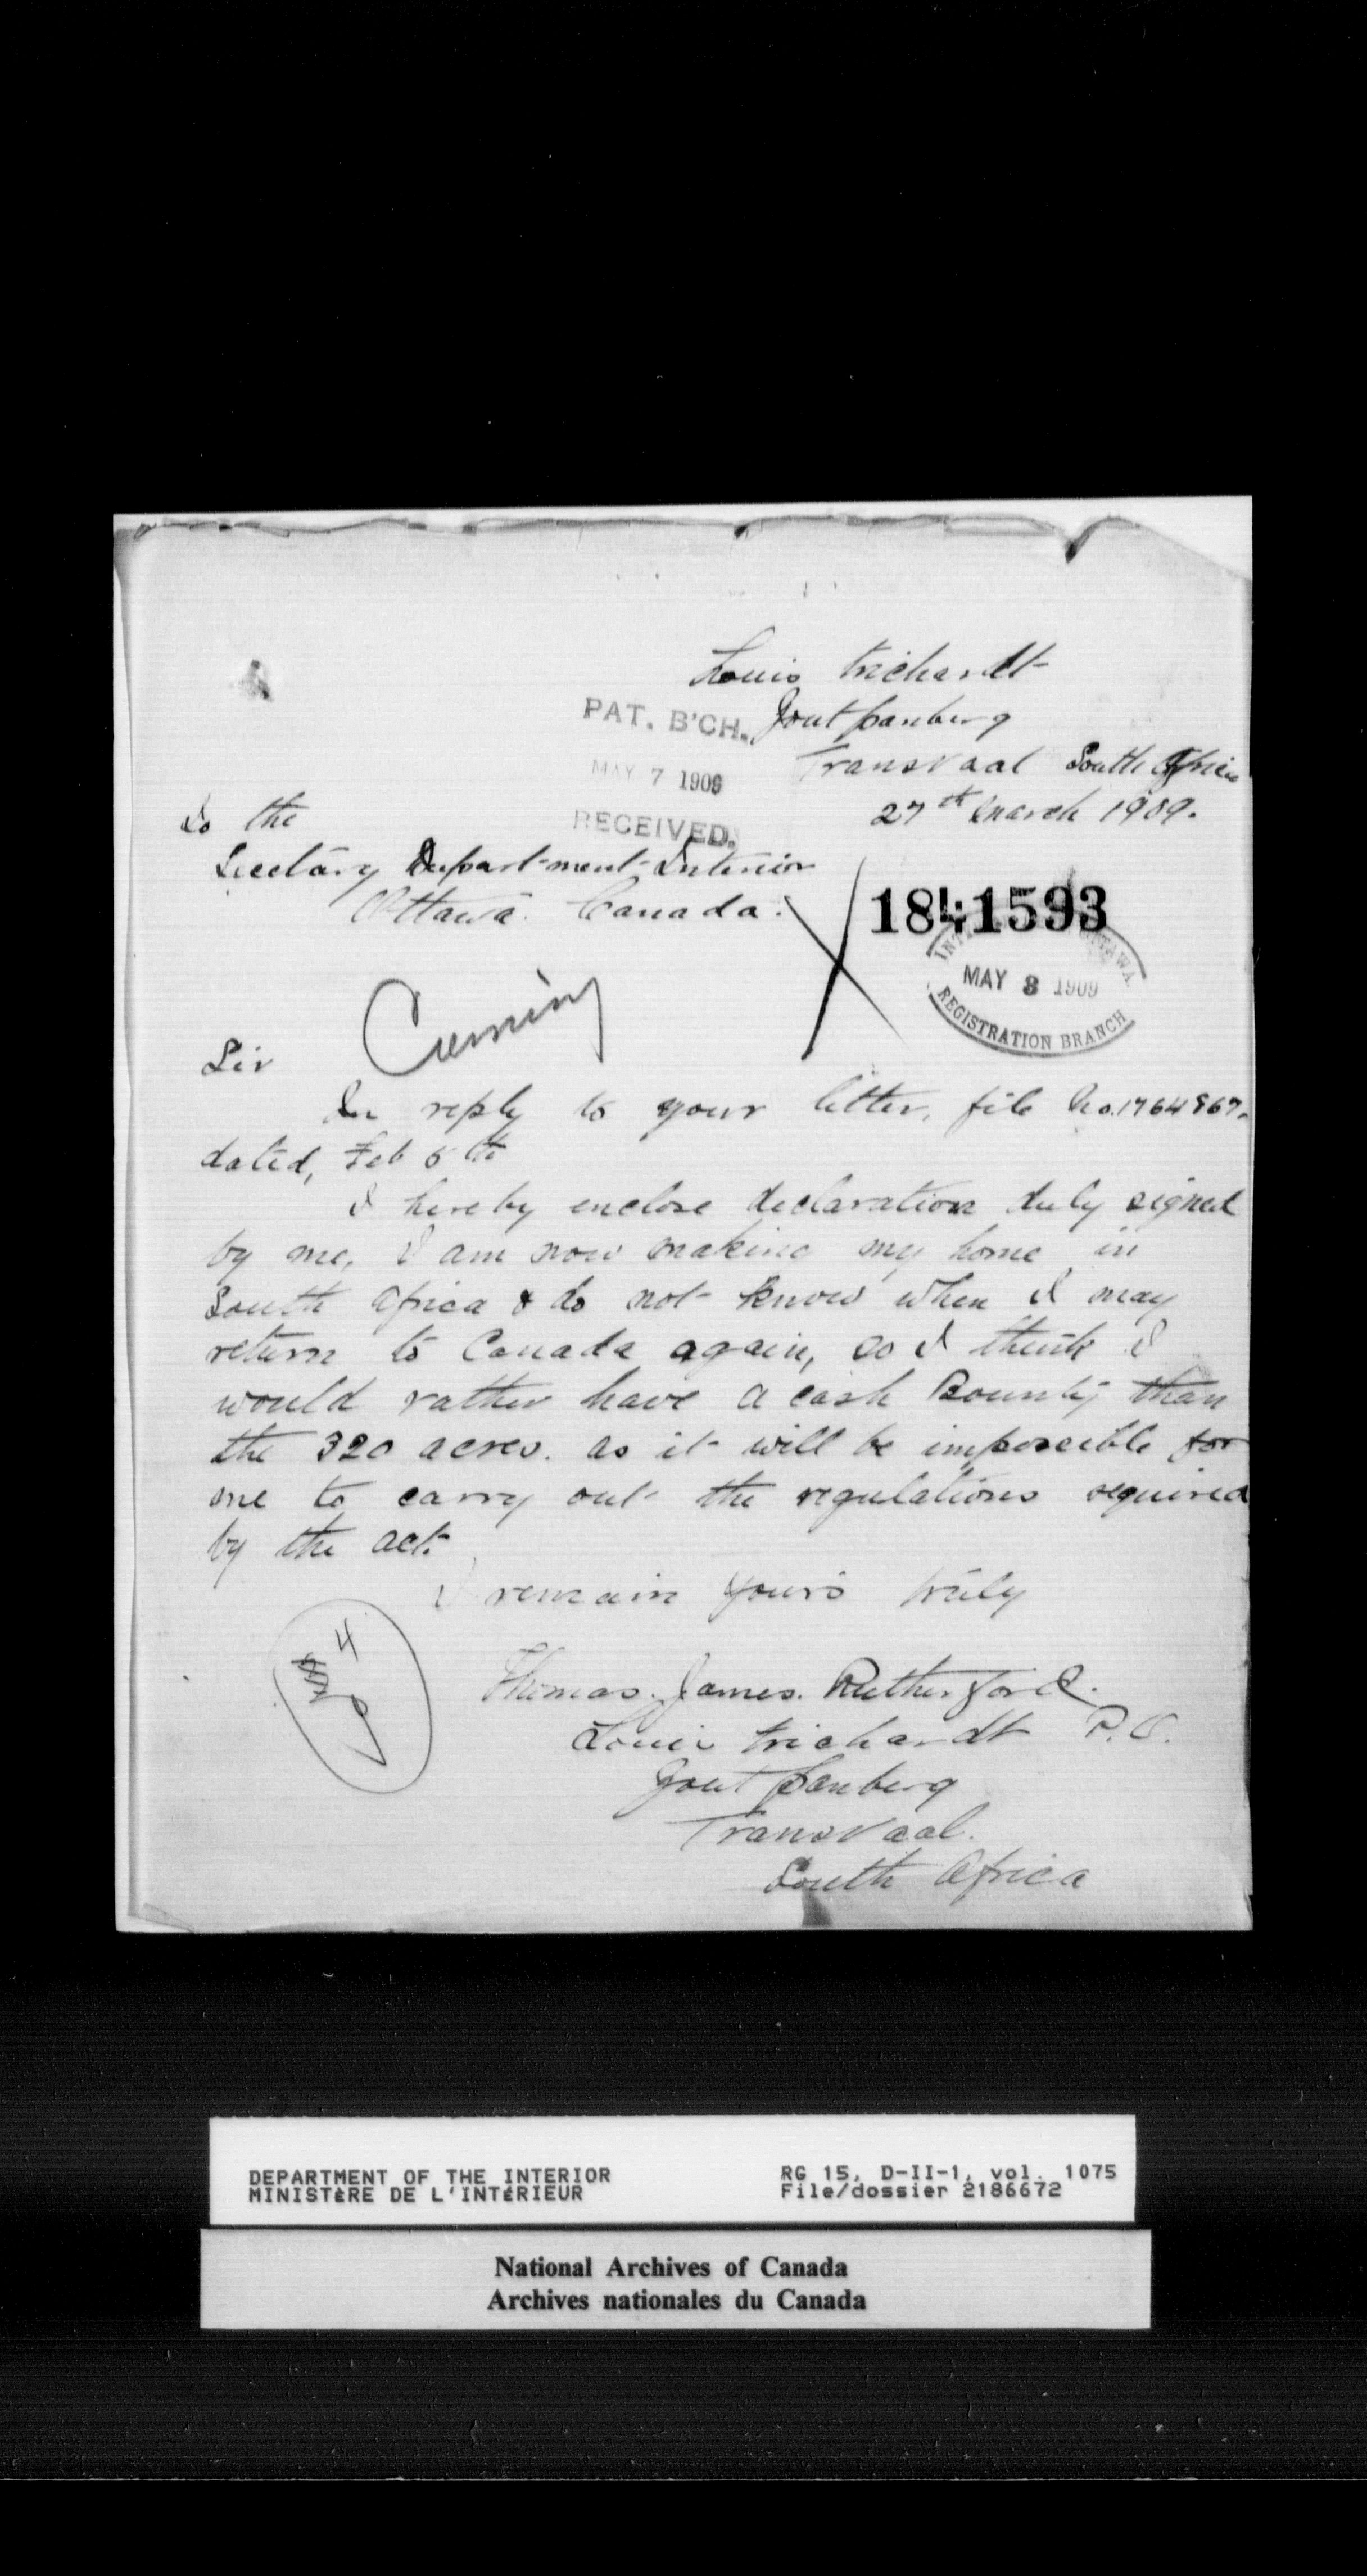 Louis Trichardt
Zoutpansberg
Transvaal South Africa
27th March 1909.
PAT. B'CH.
MAY 7 1909
RECEIVED.
To the
Secetary Department Interior
Ottawa. Canada.
1841593
OTTAWA
MAY 8 1909
REGISTRATION BRANCH
Sir
In reply to your letter, file No. 1764967.
dated, Feb 5th
I hereby enclose declaration duly signed
by me, I am now making my home in
South Africa & do not know when I may
return to Canada again, so I think I
would rather have a cash Bounty than
the 320 acres. as it will be impossible for
me to carry out the regulations required
by the act.
I remain yours truly
Thomas. James. Rutherford.
Louis Trichardt P.O.
Zoutpansberg
Transvaal.
South Africa
4
DEPARTMENT OF THE INTERIOR
MINISTÈRE DE L'INTÉRIEUR
RG 15, D-II-1, vol. 1075
File/dossier 2186672
National Archives of Canada
Archives nationales du Canada